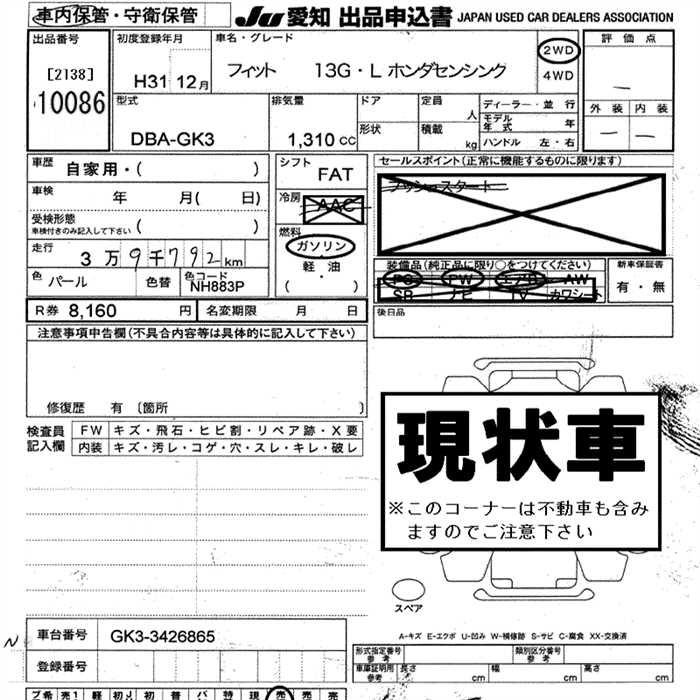 車内保管・守衛保管 JU 愛知 出品申込書 JAPAN USED CAR DEALERS ASSOCIATION
出品番号
[2138]
10086
初度登録年月
H31 12月
車名・グレード
フィット 13G・L ホンダセンシング
2WD
4WD
評価点
外装 内装
型式
DBA-GK3
排気量
1,310 cc
ドア
形状
定員
人
積載
kg
ディーラー・並 行
モデル年式 年
ハンドル 左・右
車歴 自家用・( )
車検 年 月( 日)
受検形態
車検付きのみ記入して下さい ( )
走行 3万9千792km
色 パール 色替 色コード NH883P
シフト
FAT
冷房
AAC
燃料
ガソリン
軽・油
( )
セールスポイント(正常に機能するものに限ります)
プッシュスタート
装備品(純正品に限り○をつけてください)
PS PW エアB AW
SR ナビ TV カワシート
新車保証書
有・無
R券 8,160 円 名変期限 月 日
後日品
注意事項申告欄(不具合内容等は具体的に記入して下さい)
修復歴 有 〔箇所 〕
検査員記入欄
FW キズ・飛石・ヒビ割・リペア跡・X要
内装 キズ・汚レ・コゲ・穴・スレ・キレ・破レ
現状車
※このコーナーは不動車も含み
ますのでご注意下さい
スペア
A-キズ E-エクボ U-凹み W-補修跡 S-サビ C-腐食 XX-交換済
N
車台番号 GK3-3426865
登録番号
形式指定番号
参考
類別区分番号
参考
車庫証明用
参考
長さ cm 幅 cm 高さ cm